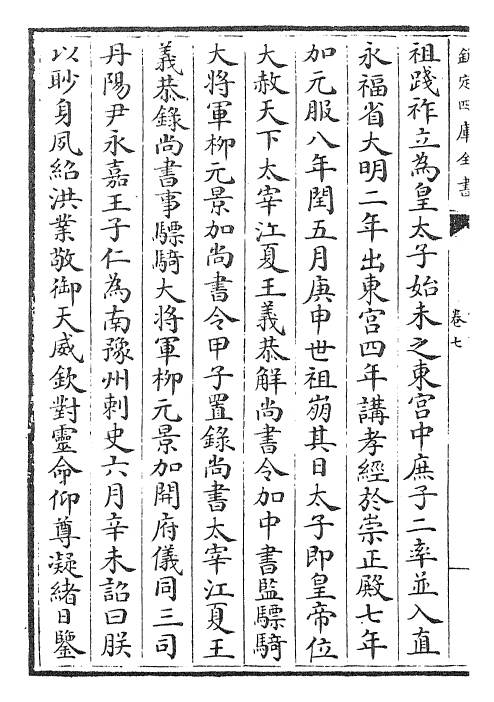 欽定四庫全書
卷七
祖踐祚立為皇太子始未之東宫中庶子二率並入直
永福省大明二年出東宫四年講孝經於崇正殿七年
加元服八年閏五月庚申世祖崩其日太子即皇帝位
大赦天下太宰江夏王義恭解尚書令加中書監驃騎
大將軍柳元景加尚書令甲子置錄尚書太宰江夏王
義恭錄尚書事驃騎大將軍柳元景加開府儀同三司
丹陽尹永嘉王子仁為南豫州刺史六月辛未詔曰朕
以眇身夙紹洪業敬御天威欽對靈命仰尊凝緒日鑒